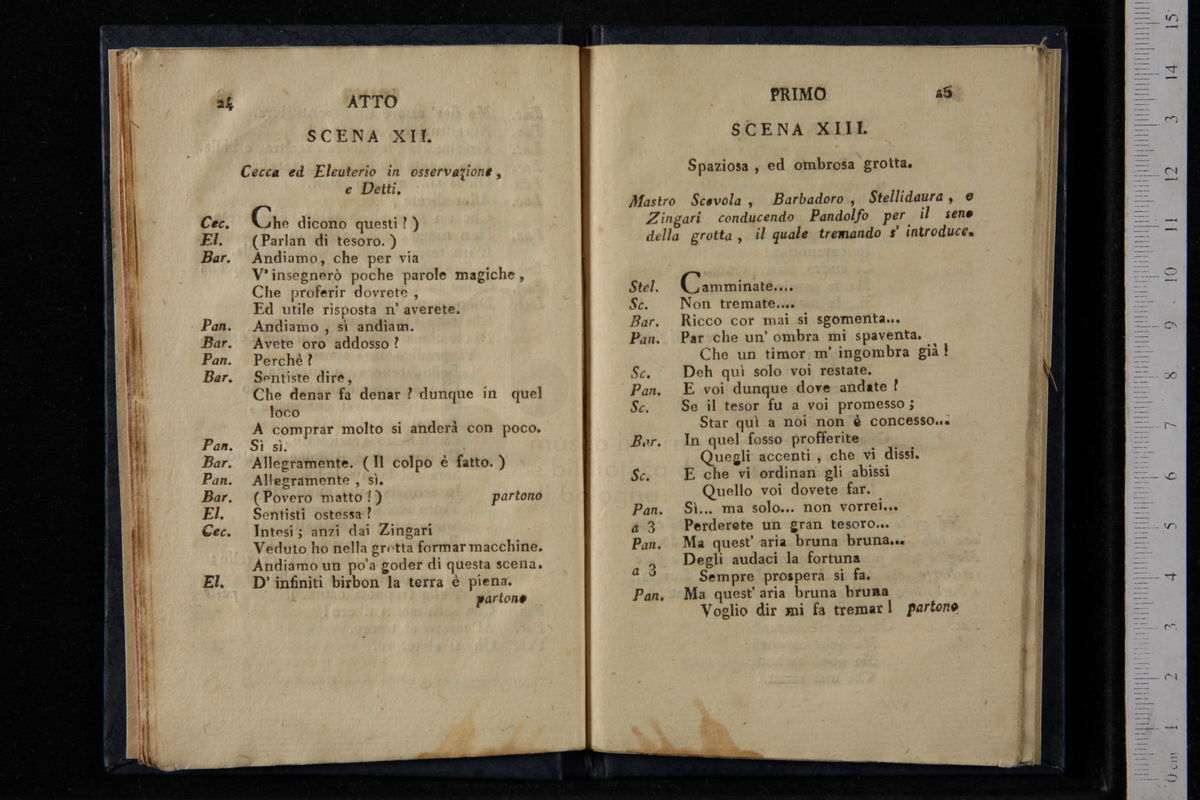 24 ATTO
SCENA XII.
Cecca ed Eleuterio in osservazione,
e Detti.
Cec. Che dicono questi ? )
El. (Parlan di tesoro. )
Bar. Andiamo, che per via
V' insegnerò poche parole magiche ,
Che proferir dovrete ,
Ed utile risposta n' averete.
Pan. Andiamo , sì andiam.
Bar. Avete oro addosso ?
Pan. Perchè ?
Bar. Sentiste dire,
Che denar fa denar ? dunque in quel
loco
A comprar molto si anderà con poco.
Pan. Sì sì.
Bar. Allegramente. ( Il colpo è fatto. )
Pan. Allegramente , sì.
Bar. ( Povero matto ! ) partono
El. Sentisti ostessa ?
Cec. Intesi ; anzi dai Zingari
Veduto ho nella grotta formar macchine.
Andiamo un po' a goder di questa scena.
El. D' infiniti birbon la terra è piena.
partono
PRIMO 25
SCENA XIII.
Spaziosa , ed ombrosa grotta.
Mastro Scevola , Barbadoro , Stellidaura , e
Zingari conducendo Pandolfo per il seno
della grotta , il quale tremando s' introduce.
Stel. Camminate....
Sc. Non tremate....
Bar. Ricco cor mai si sgomenta...
Pan. Par che un' ombra mi spaventa.
Che un timor m' ingombra già !
Sc. Deh quì solo voi restate.
Pan. E voi dunque dove andate ?
Sc. Se il tesor fu a voi promesso ;
Star quì a noi non è concesso...
Bar. In quel fosso profferite
Quegli accenti , che vi dissi.
Sc. E che vi ordinan gli abissi
Quello voi dovete far.
Pan. Sì... ma solo... non vorrei...
a 3 Perderete un gran tesoro...
Pan. Ma quest' aria bruna bruna...
a 3 Degli audaci la fortuna
Sempre prospera si fa.
Pan. Ma quest' aria bruna bruna
Voglio dir mi fa tremar ! partono
0 cm 1 2 3 4 5 6 7 8 9 10 11 12 13 14 15